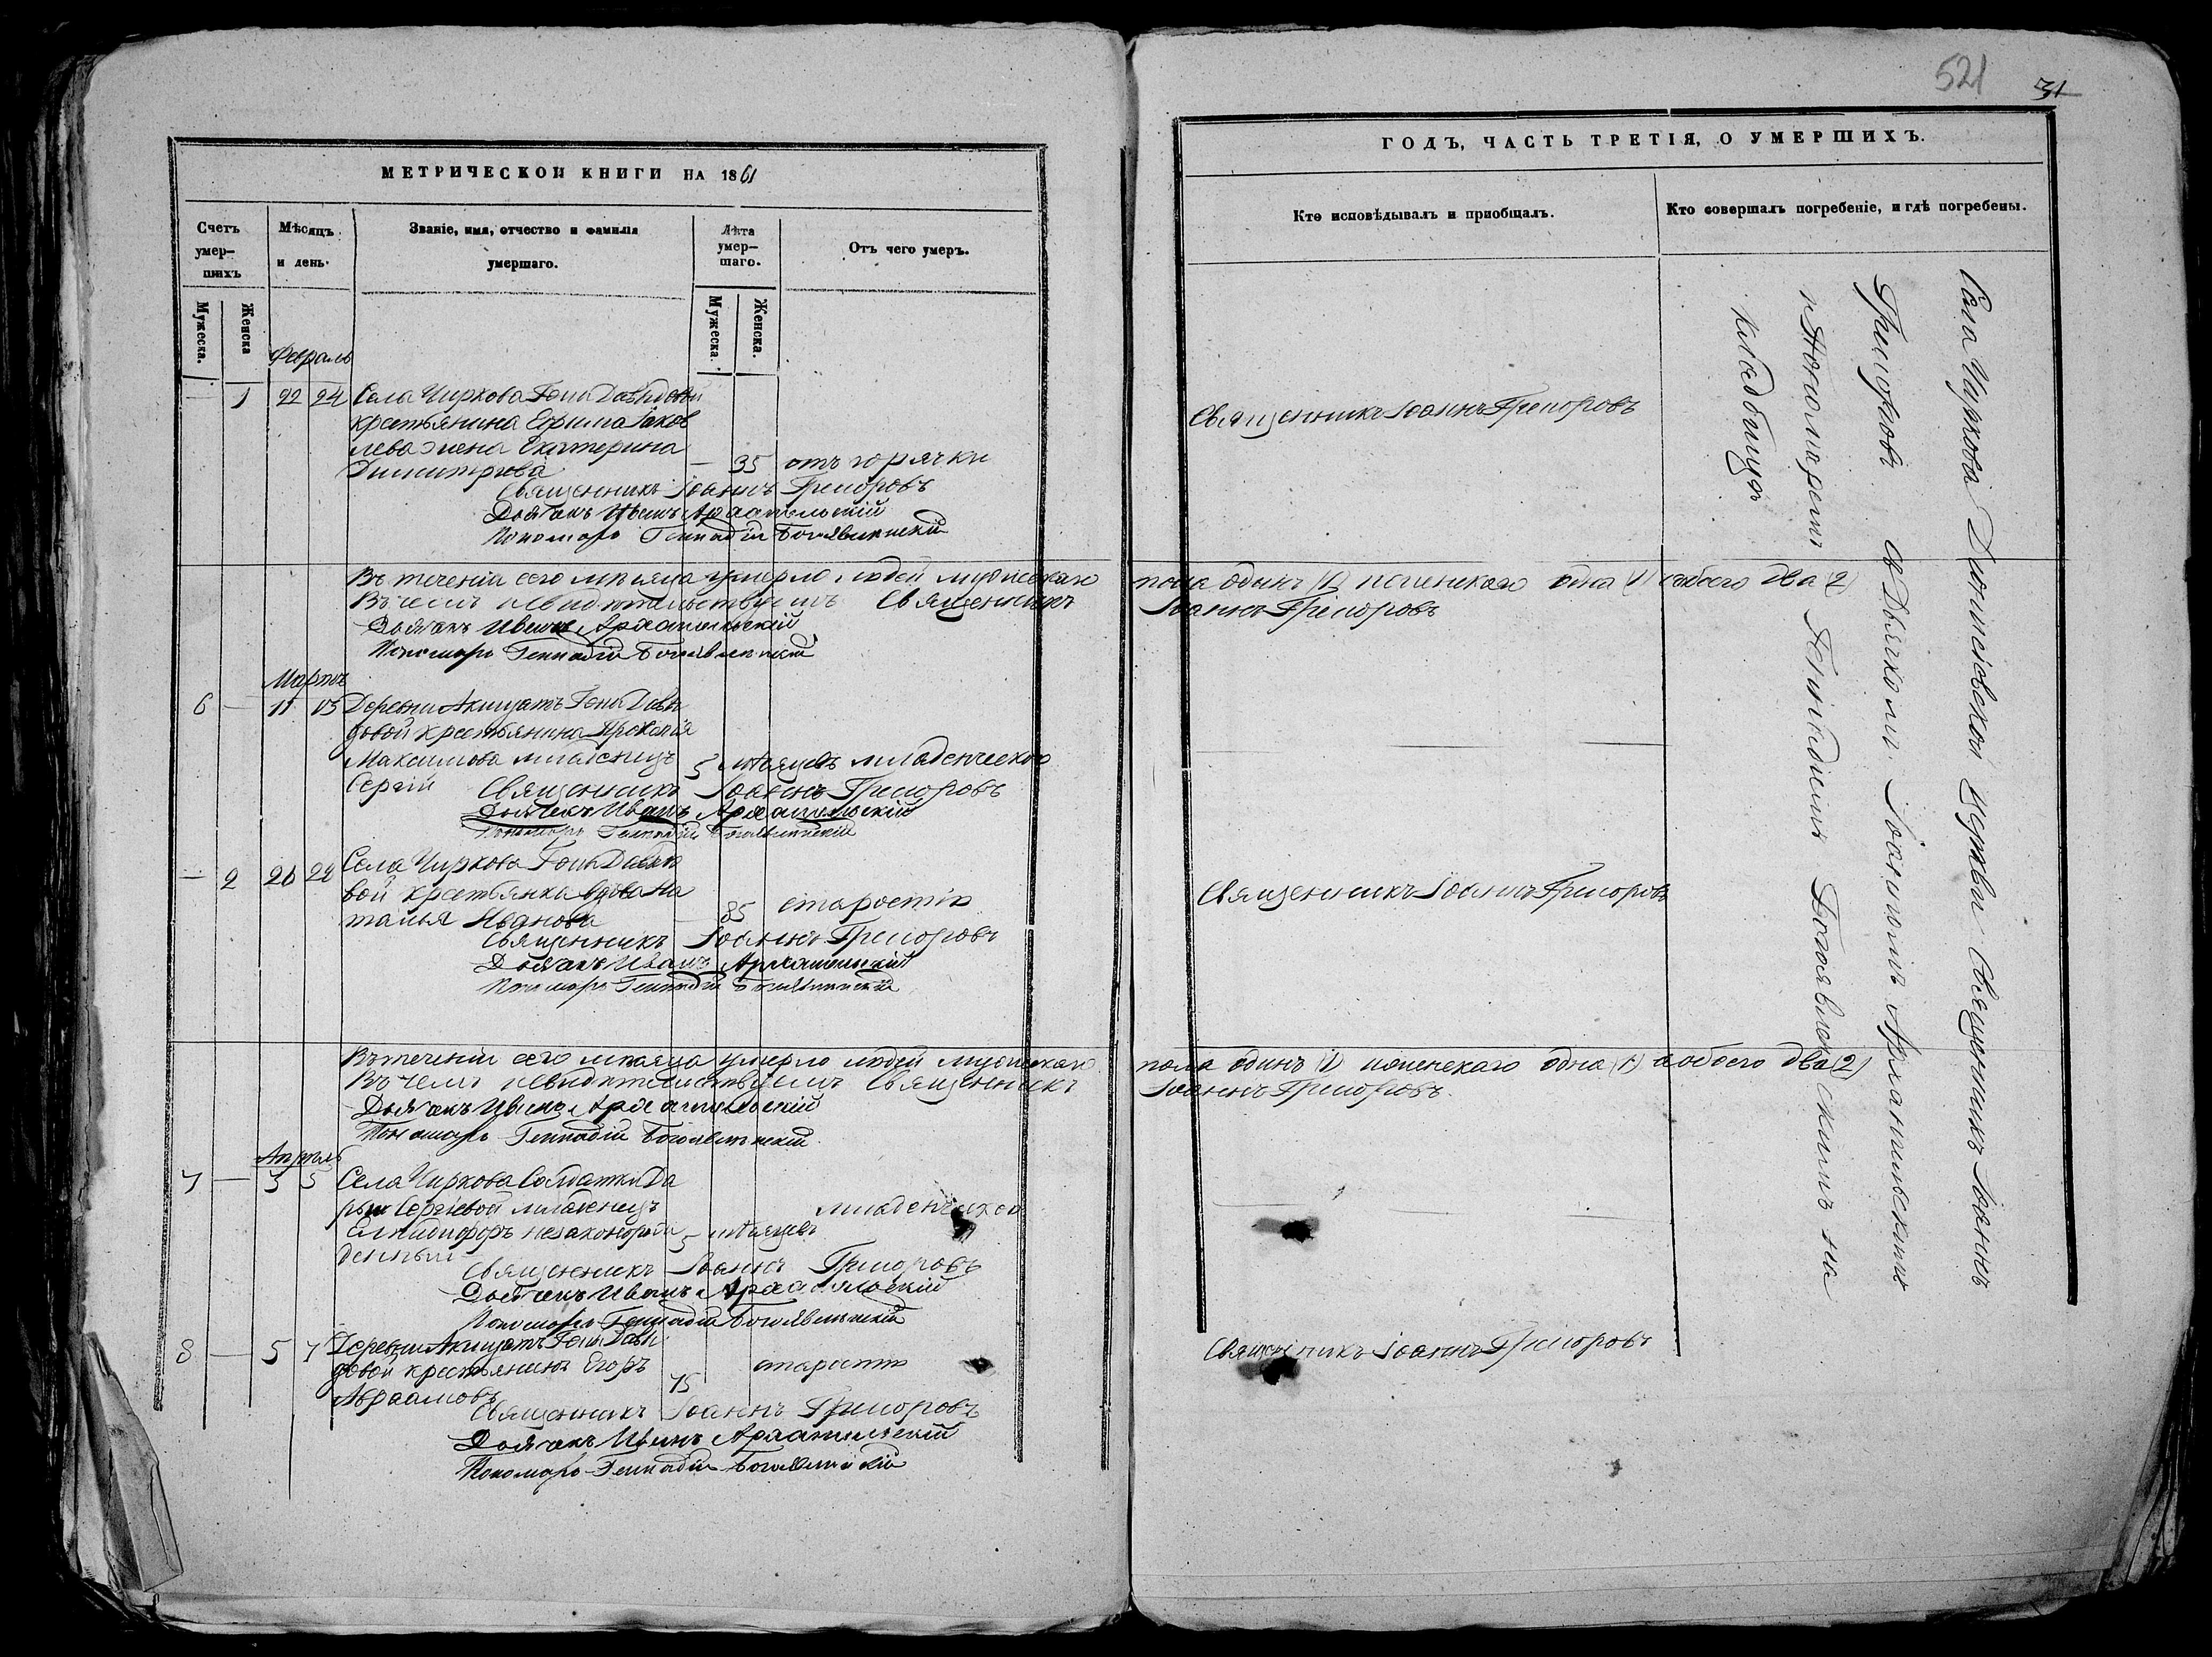 МЕТРИЧЕСКОЙ КНИГИ НА 1861
Счетъ умер-шихъ
Мѣсяцъ и день.
Званіе, имя, отчество и фамилія умершаго.
Лѣта умер-шаго.
Отъ чего умеръ.
Мужеска.
Женска
Мужеска.
Женска.
Февраль
— 1 22 24 Села Чиркова Гони Давыдовой
крестьянина Ефима Яков
лева жена Екатерина
Димитріева — 35 отъ горячки
Священникъ Іоаннъ Григоровъ
Дьячекъ Иванъ Архангельскій
Пономарь Геннадій Богоявленскій
Въ теченіи сего мѣсяца умерло людей мужескаго
Въ чемъ и свидѣтельствуемъ Священникъ
Дьячекъ Иванъ Архангельскій
Пономарь Геннадій Богоявленскій
Мартъ
6 — 11 13 Деревни Акищатъ Гони Давы
довой крестьянина
Максимова младенецъ 5 мѣсяцевъ младенческою
Сергій Священникъ Іоаннъ Григоровъ
Дьячекъ Иванъ Архангельскій
Пономарь Геннадій Богоявленскій
— 2 20 22 Села Чиркова Гони Давыдо
вой крестьянка вдова На
талья Иванова — 85 старостію
Священникъ Іоаннъ Григоровъ
Дьячекъ Иванъ Архангельскій
Пономарь Геннадій Богоявленскій
Въ теченіи сего мѣсяца умерло людей мужескаго
Въ чемъ и свидѣтельствуемъ Священникъ
Дьячекъ Иванъ Архангельскій
Пономарь Геннадій Богоявленскій
Апрель
7 — 3 5 Села Чиркова Солдатки Да
рьи Сергіевой младенецъ младенческою
Елпидифоръ незаконорож 5 мѣсяцевъ
денный
Священникъ Іоаннъ Григоровъ
Дьячекъ Иванъ Архангельскій
Пономарь Геннадій Богоявленскій
8 — 5 7 Деревни Акищатъ Гони Давы
довой крестьянинъ Егоръ 75 старости
Авраамовъ
Священникъ Іоаннъ Григоровъ
Дьячекъ Иванъ Архангельскій
Пономарь Геннадій Богоявленскій
521 31
ГОДЪ, ЧАСТЬ ТРЕТІЯ, О УМЕРШИХЪ.
Кто исповѣдывалъ и пріобщалъ.
Кто совершалъ погребеніе, и гдѣ погребены.
Священникъ Іоаннъ Григоровъ
пола одинъ (1) и женскаго одна (1) а обоего два (2)
Іоаннъ Григоровъ
Священникъ Іоаннъ Григоровъ
пола одинъ (1) и женскаго одна (1) а обоего два (2)
Іоаннъ Григоровъ.
Священникъ Іоаннъ Григоровъ
Села Чиркова Діонисіевской Церкви Священникъ Іоаннъ
Григоровъ съ Дьячкомъ Іоанномъ Архангельскимъ
и Пономаремъ Геннадіемъ Богоявленскимъ на
кладбищѣ